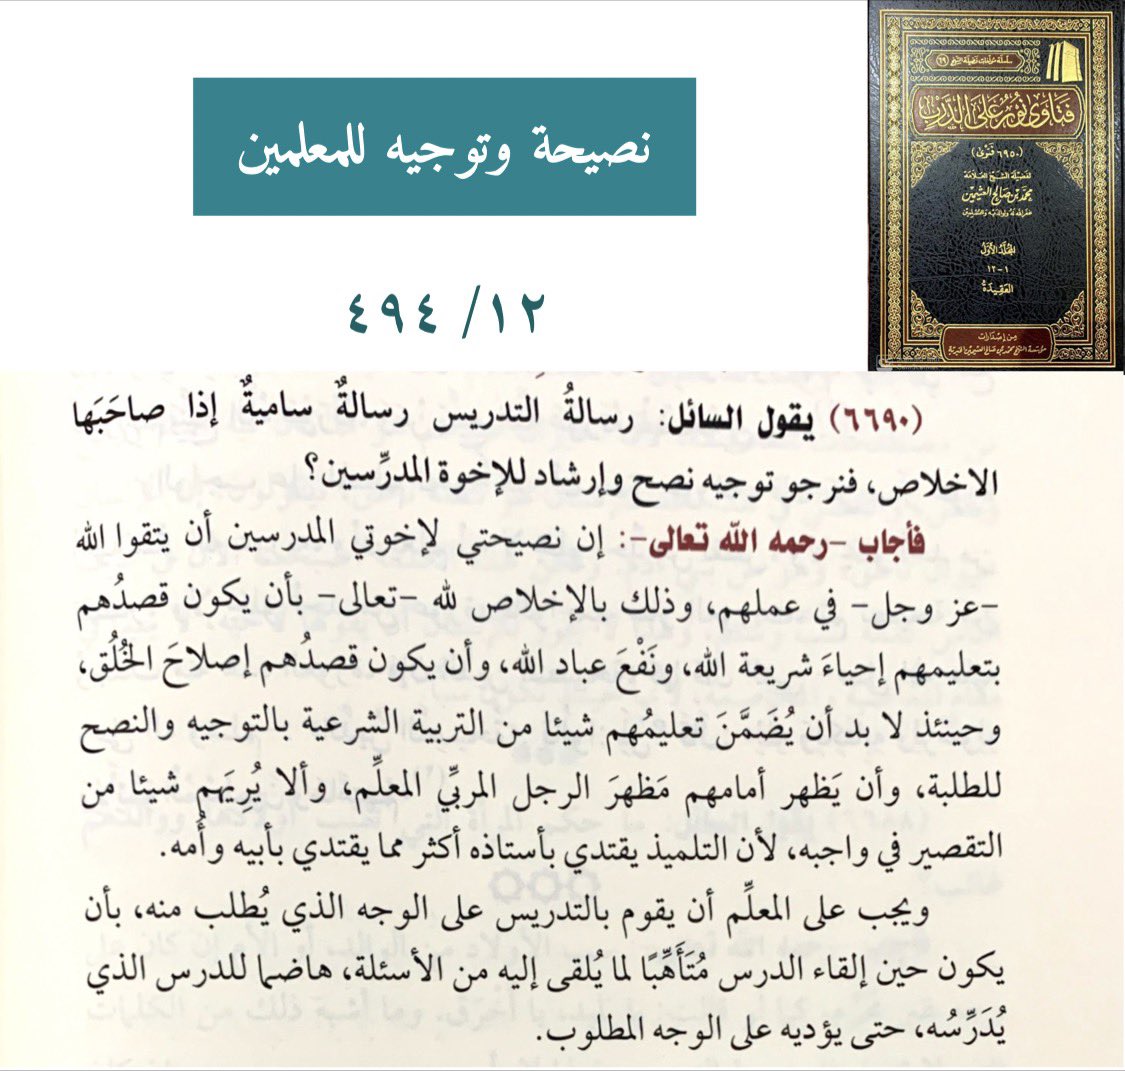 نصيحة وتوجيه للمعلمين
١٢/ ٤٩٤
سلسلة مؤلفات فضيلة الشيخ (٦٩)
فتاوى نور على الدرب
(٦٩٥٠ فتوى)
لفضيلة الشيخ العلامة
محمد بن صالح العثيمين
غفر الله له ولوالديه وللمسلمين
المجلد الأول
١ - ١٢
العقيدة
من إصدارات
مؤسسة الشيخ محمد بن صالح العثيمين الخيرية
(٦٦٩٠) يقول السائل: رسالةُ التدريس رسالةٌ ساميةٌ إذا صاحَبَها
الاخلاص، فنرجو توجيه نصح وإرشاد للإخوة المدرِّسين؟
فأجاب -رحمه الله تعالى-: إن نصيحتي لإخوتي المدرسين أن يتقوا الله
-عز وجل- في عملهم، وذلك بالإخلاص لله -تعالى- بأن يكون قصدُهم
بتعليمهم إحياءَ شريعة الله، ونَفْعَ عباد الله، وأن يكون قصدُهم إصلاحَ الخُلُق،
وحينئذ لا بد أن يُضَمَّنَ تعليمُهم شيئا من التربية الشرعية بالتوجيه والنصح
للطلبة، وأن يَظهر أمامهم مَظهرَ الرجل المربِّي المعلِّم، وألا يُرِيَهم شيئا من
التقصير في واجبه، لأن التلميذ يقتدي بأستاذه أكثر مما يقتدي بأبيه وأُمه.
ويجب على المعلِّم أن يقوم بالتدريس على الوجه الذي يُطلب منه، بأن
يكون حين إلقاء الدرس مُتَأَهِّبًا لما يُلقى إليه من الأسئلة، هاضما للدرس الذي
يُدَرِّسُه، حتى يؤديه على الوجه المطلوب.